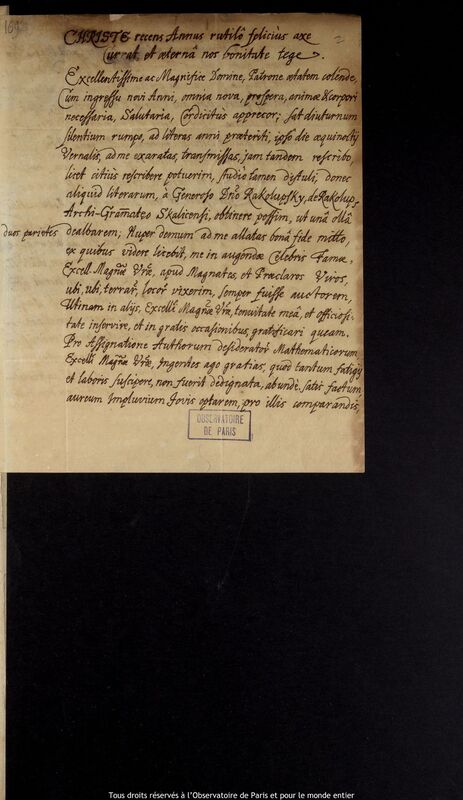 CHRISTE recens Annus rutilô feliciùs axe
Currat, et æternâ nos bonitate tege.
Excellentissime ac Magnifice Domine, Patrone ætatem colende,
Cum ingressu novi Anni, omnia nova, prospera, animæ & corpori
necessaria, Salutaria, Cordicitus apprecor; sat diuturnum
silentium rumpo, ad literas anni præteriti, ipso die æquinoctij
Vernalis, ad me exaratas, transmissas, jam tandem rescribo,
licet citius rescribere potuerim, studio tamen distuli, donec
aliquid literarum, à Generoso Dnō Rakolupsky, de Rakolup,
Archi-Grāmatæo Skalicensi, obtinere possim, ut unâ ollâ
duos parietes
dealbarem; Nuper demum ad me allatas bonâ fide mitto,
ex quibus videre licebit, me in augendæ Celebris Famæ,
Excell. Magnæ Vræ, apud Magnates, et Præclaros Viros,
ubi, ubi, terrar, locor vixerim, semper fuisse auctorem,
Utinam in alijs, Excellæ Magnæ Vræ, tenuitate meâ, et officiosi-
tate inservire, et in gratis occasionibus, gratificari queam.
Pro Assignatione Authorum desiderator Mathematicorum,
Excell. Magnæ Vræ, Ingentes ago gratias, quòd tantum fatigij
et laboris suscipere, non fuerit dedignata, abundè satis factum
aureum Impluvium Jovis optarem, pro illis comparandis,
OBSERVATOIRE
DE PARIS
Tous droits réservés à l'Observatoire de Paris et pour le monde entier